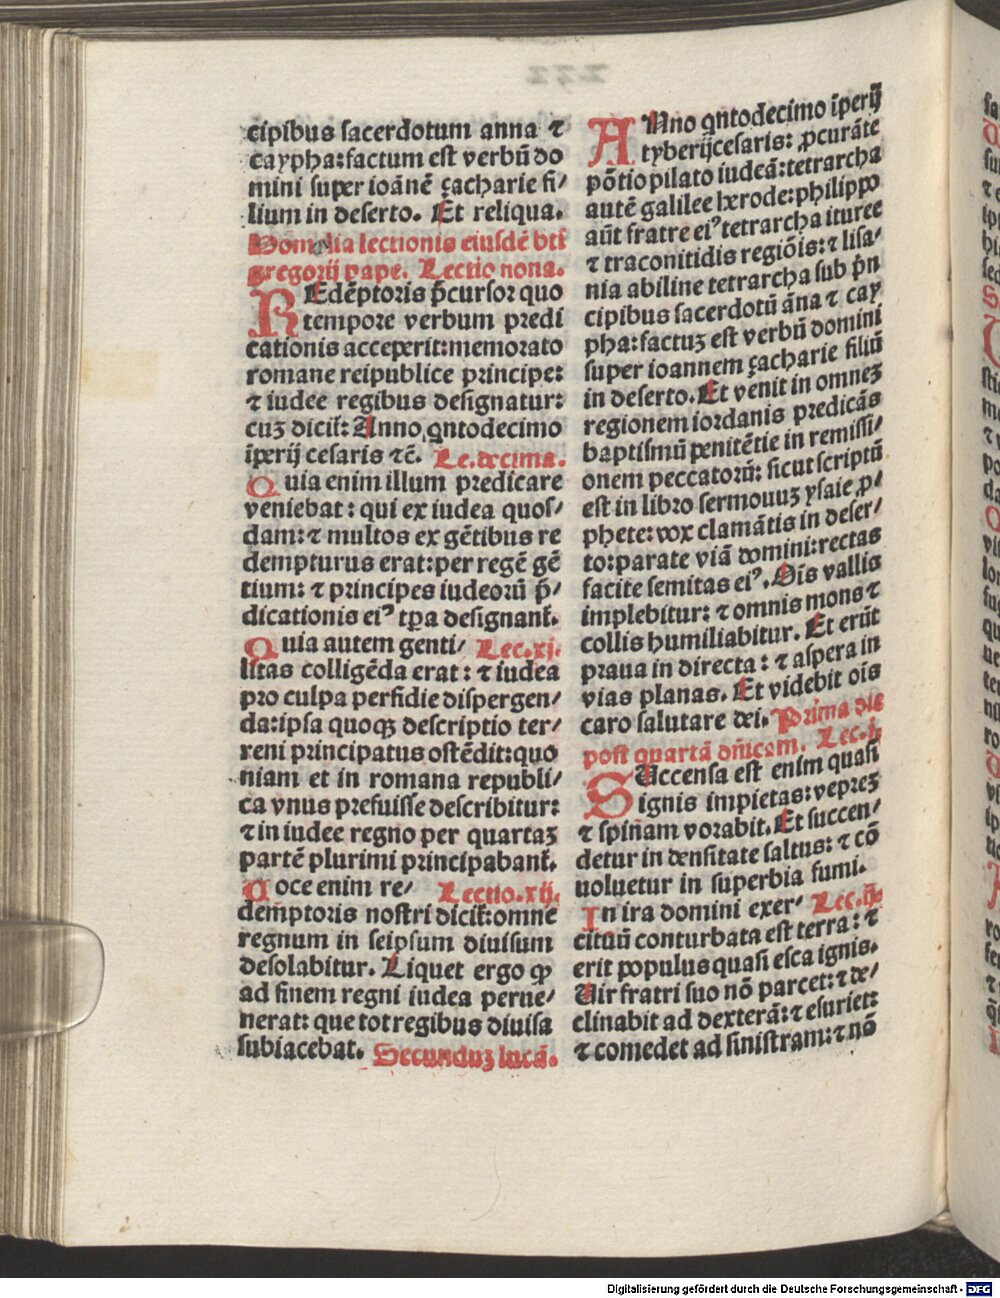 cipibus sacerdotum anna ⁊
caypha:factum est verbū do
mini super ioānē çacharie fi/
lium in deserto. Et reliqua.
Homelia lectionis eiusdē bti
gregorii pape. Lectio nona.
REdēptoris p̄cursor quo
tempore verbum predi
cationis acceperit:memorato
romane reipublice principe:
⁊ iudee regibus designatur:
cuꝫ dicit̄: Anno qntodecimo
īperij cesaris ⁊c̄. Le.decima.
Quia enim illum predicare
veniebat: qui ex iudea quos/
dam:⁊ multos ex gētibus re
dempturus erat:per regē gē
tium: ⁊ principes iudeorū p̄/
dicationis eiꝰ tꝑa designant̄.
Quia autem genti/ Lec.xj.
litas colligēda erat: ⁊ iudea
pro culpa perfidie dispergen/
da:ipsa quoqꝫ descriptio ter/
reni principatus ostēdit:quo
niam et in romana republi/
ca vnus prefuisse describitur:
⁊ in iudee regno per quartaꝫ
partē plurimi principabant̄.
Uoce enim re/ Lectio.xij.
demptoris nostri dicit̄:omne
regnum in seipsum diuisum
desolabitur. Liquet ergo ꝙ
ad finem regni iudea perue/
nerat: que tot regibus diuisa
subiacebat. Secunduꝫ lucā.
ANno qntodecimo īperij
tyberij cesaris: ꝓcurāte
pōtio pilato iudeā:tetrarcha
autē galilee herode:philippo
aūt fratre eiꝰ tetrarcha ituree
⁊ traconitidis regiōis:⁊ lisa/
nia abiline tetrarcha sub p̄n
cipibus sacerdotū āna ⁊ cay
pha:factuꝫ est verbū domini
super ioannem çacharie filiū
in deserto. Et venit in omneꝫ
regionem iordanis predicās
baptismū penitētie in remissi/
onem peccatorū: sicut scriptū
est in libro sermouuꝫ ysaie ꝓ/
phete:vox clamātis in deser/
to:parate viā domini:rectas
facite semitas eiꝰ. Ois vallis
implebitur: ⁊ omnis mons ⁊
collis humiliabitur. Et erūt
praua in directa: ⁊ aspera in
vias planas. Et videbit ois
caro salutare dei. Prima die
post quartā dn̄icam. Lec.i.
SUccensa est enim quasi
ignis impietas:vepreꝫ
⁊ spinam vorabit. Et succen/
detur in densitate saltus: ⁊ cō
uoluetur in superbia fumi.
In ira domini exer/ Lec.ij.
cituū conturbata est terra: ⁊
erit populus quasi esca ignis.
Uir fratri suo nō parcet:⁊ de/
clinabit ad dexterā:⁊ esuriet:
⁊ comedet ad sinistram:⁊ nō
Digitalisierung gefördert durch die Deutsche Forschungsgemeinschaft - DFG